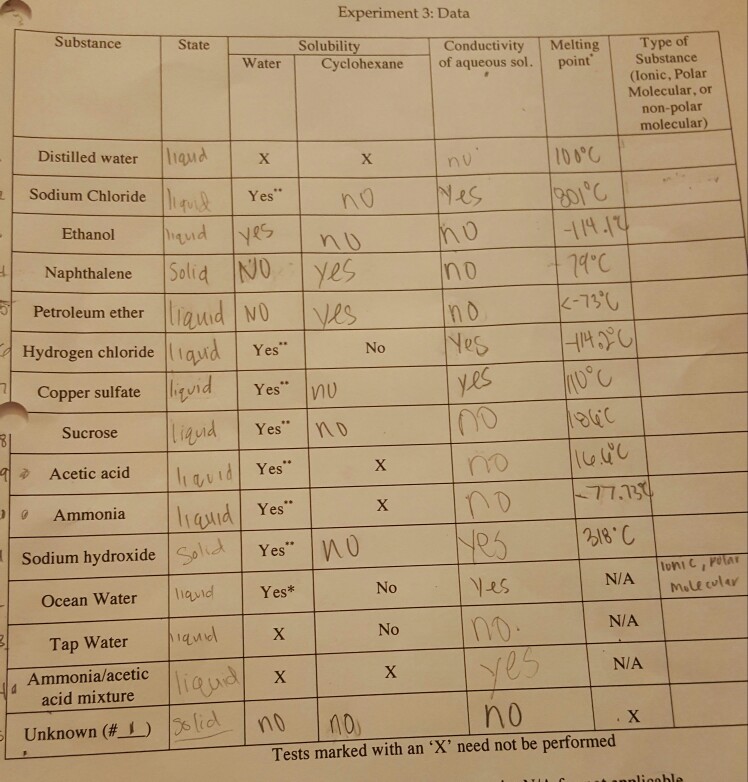 Experiment 3: Data
Substance State Solubility Conductivity of aqueous sol. Melting point* Type of Substance (Ionic, Polar Molecular, or non-polar molecular)
Water Cyclohexane
Distilled water liquid X X no 100°C
2 Sodium Chloride liquid Yes** no Yes 801°C
Ethanol liquid yes no no -114.1°
Naphthalene Solid NO yes no 79°C
5 Petroleum ether liquid NO yes no <-73°C
Hydrogen chloride liquid Yes** No Yes -114.2°C
7 Copper sulfate liquid Yes** no yes 110°C
8 Sucrose liquid Yes** no no 186°C
9 Acetic acid liquid Yes** X no 16.6°C
Ammonia liquid Yes** X no -77.73°C
Sodium hydroxide Solid Yes** NO yes 318°C
Ocean Water liquid Yes* No Yes N/A Ionic, polar Molecular
Tap Water liquid X No no. N/A
Ammonia/acetic acid mixture liquid X X yes N/A
Unknown (# 1 ) Solid no no no X
Tests marked with an 'X' need not be performed